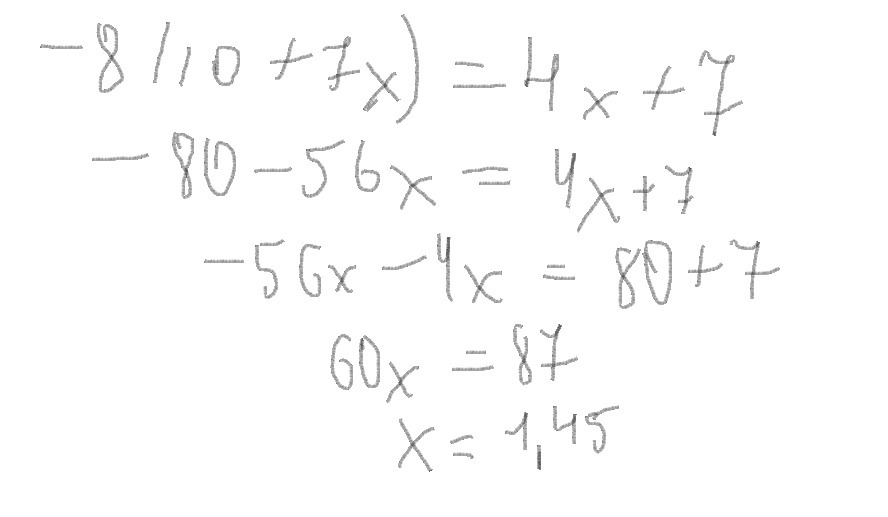 -8(10+7x)=4x+7
-80-56x=4x+7
-56x-4x=80+7
60x=87
x=1,45